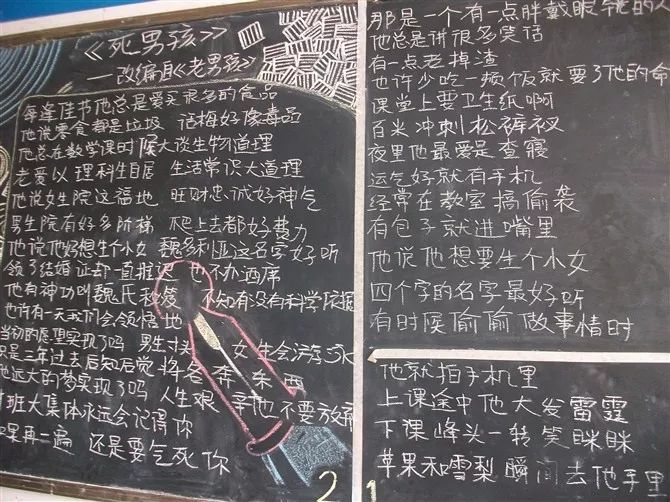 《死男孩》
—改编自《老男孩》
每逢佳书他总是爱买很多的食品
他说零食都是垃圾 话梅好像毒品
他总在数学课时候大谈生物道理
老爱以理科生自居 生活常识大道理
他说女生院这福地 旺财忠诚好神气
男生院有好多阶梯 爬上去都好费力
他说他好想生个小女 魏多利亚这名字好听
领了结婚证却一直推迟 也不办酒席
他有神功叫魏氏秘笈 不知有没有科学依据
也许有一天我们会领悟地
当初的愿望实现了吗 男生寸头 女生会游泳
只是三年过去后知后觉 将各奔东西
他远大的梦实现了吗 人生艰辛他也不要放弃
班大集体永远会记得你
再一遍 还是要气死你
2
那是一个有一点胖戴眼镜的
他总是讲很多笑话
有一点老掉渣
也许少吃一顿饭就要了他的命
课堂上要卫生纸啊
百米冲刺松裤衩
夜里他最爱是查寝
运气好就有手机
经常在教室搞偷袭
有包子就进嘴里
他说他想要生个小女
四个字的名字最好听
有时候偷偷做事情时
1
他就拍手机里
上课途中他大发雷霆
下课峰头一转笑眯眯
苹果和雪梨瞬间去他手里